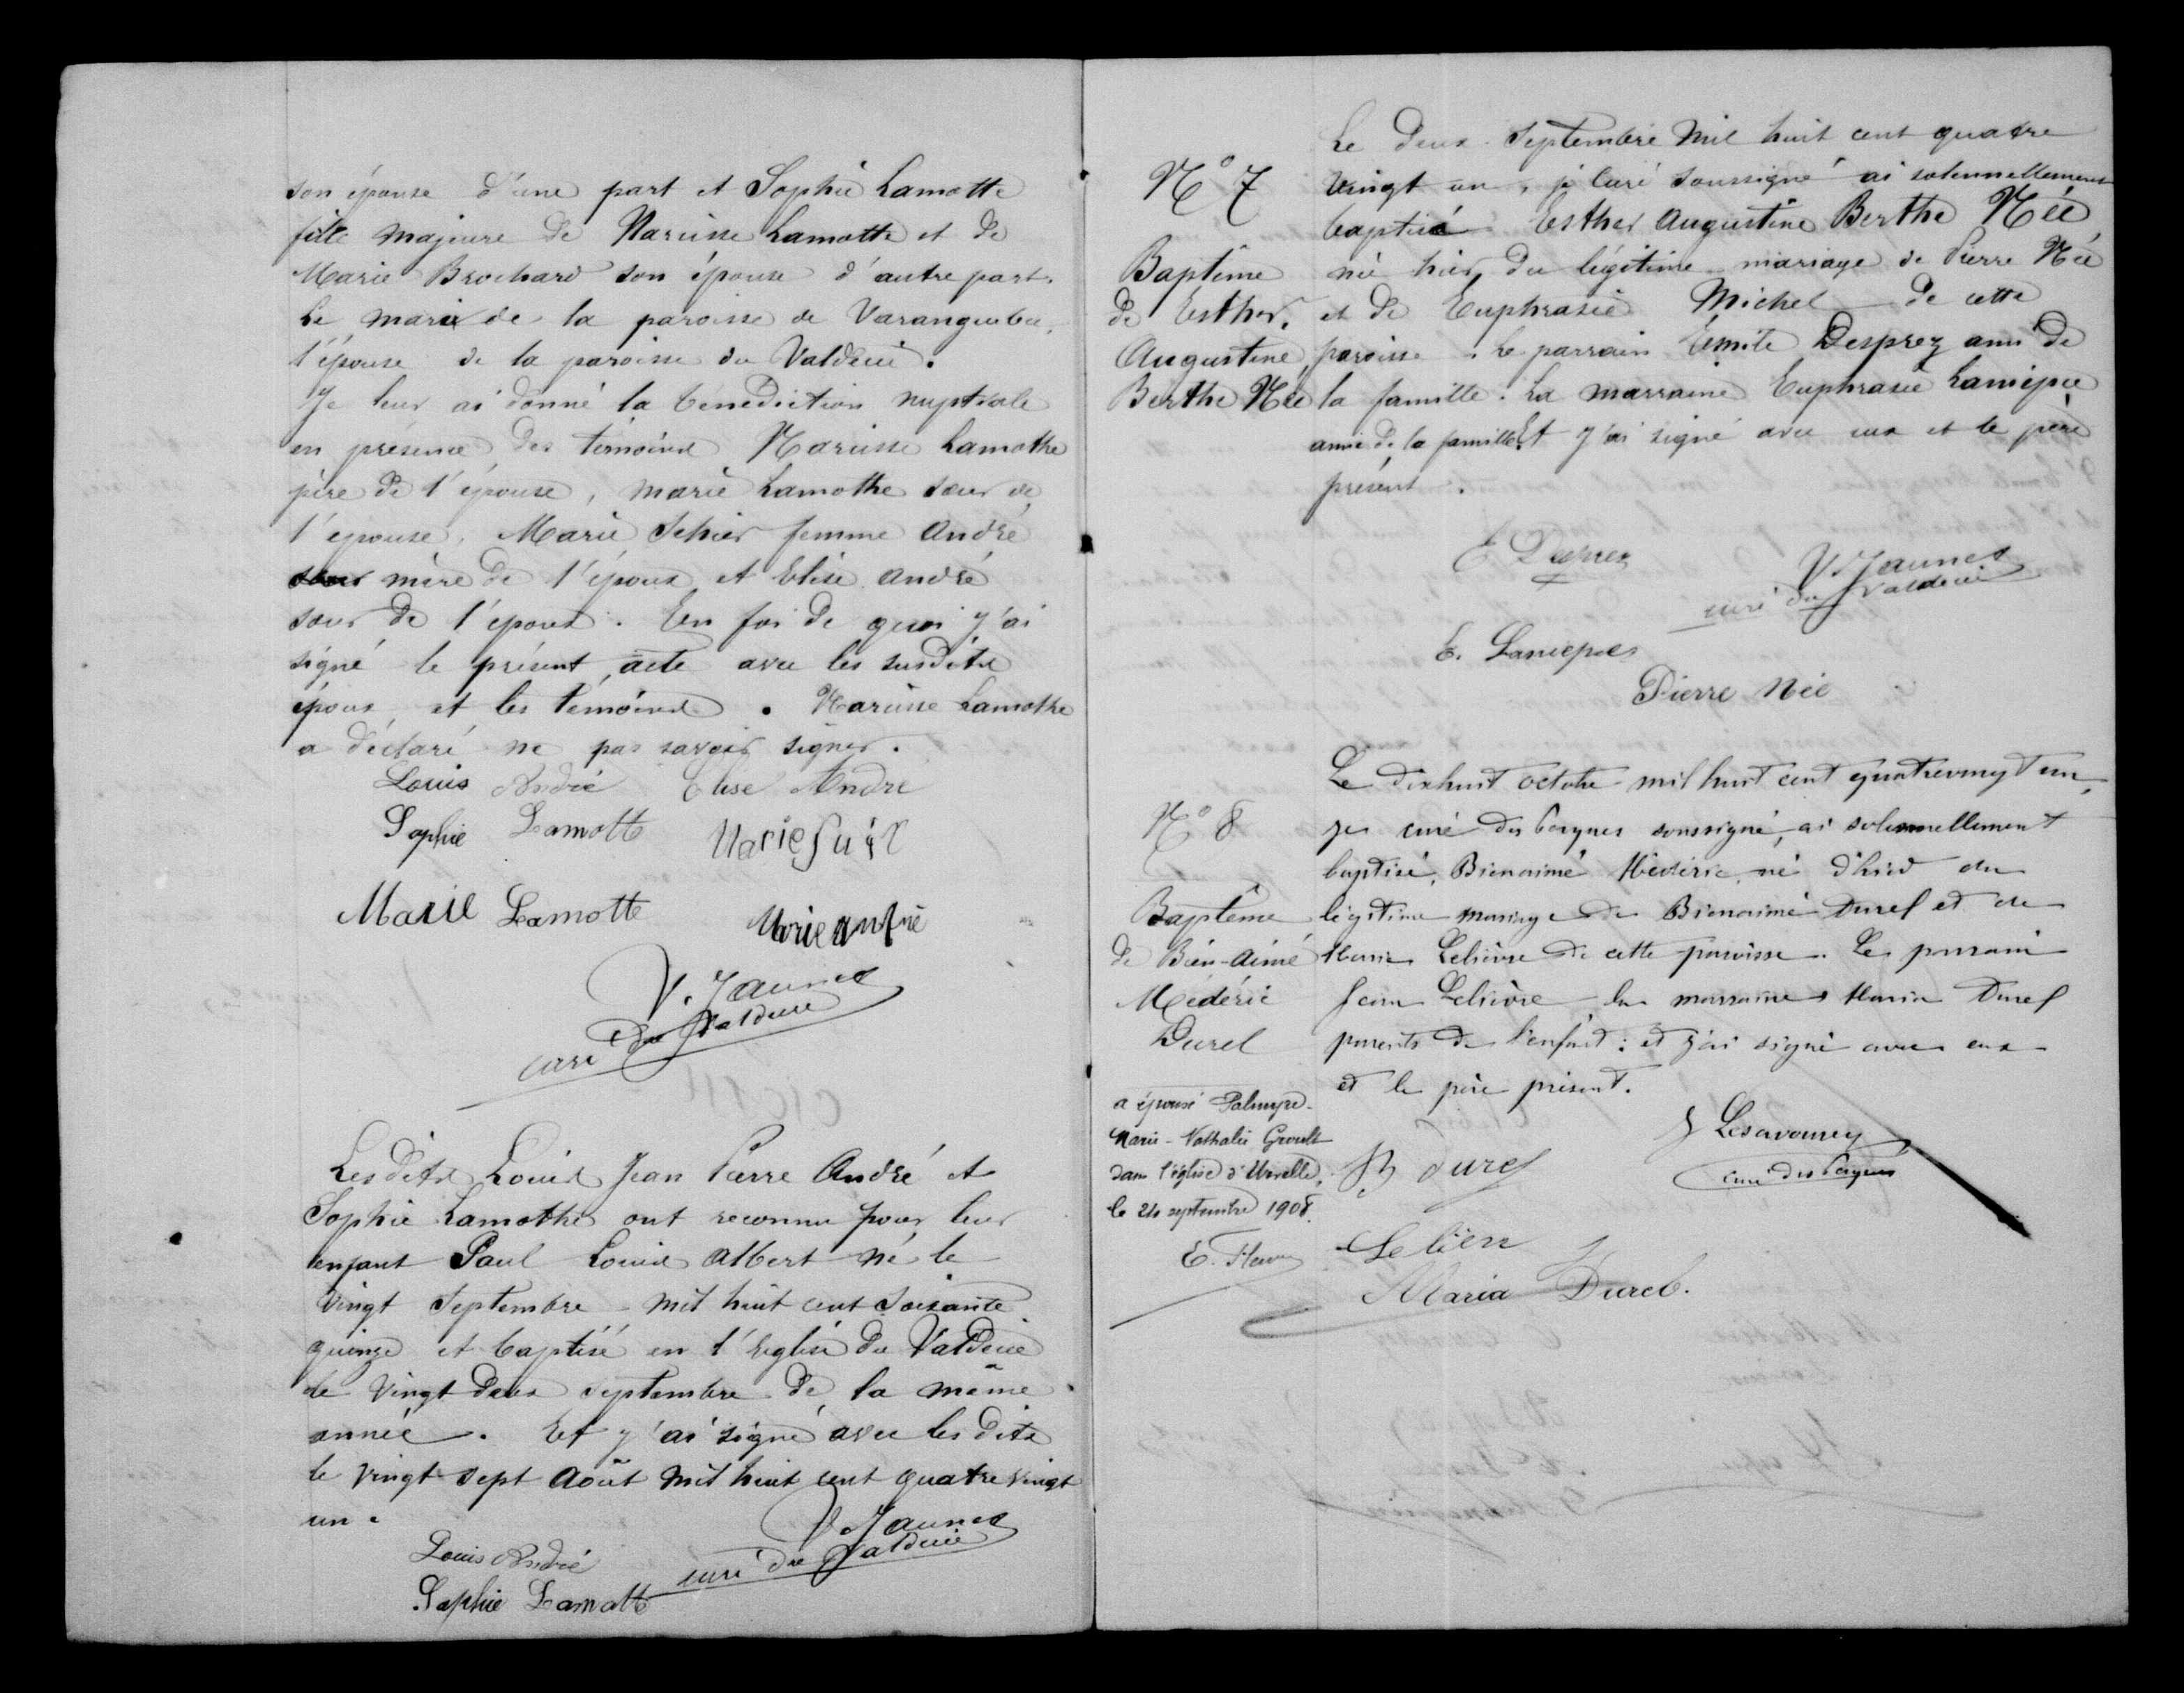 son épouse d'une part et Sophie Lamotte
fille majeure de Narcisse Lamotte et de
Marie Brochard son épouse d'autre part.
Le mari de la paroisse de Varanguebec,
l'épouse de la paroisse du Valdécie.
Je leur ai donné la bénédiction nuptiale
en présence des témoins Narcisse Lamothe
père de l'épouse, marie Lamothe sœur de
l'épouse, Marie femme André
mère de l'époux et Elise André
sœur de l'époux. En foi de quoi j'ai
signé le présent acte avec les susdits
époux et les témoins. Narcisse Lamothe
a déclaré ne pas savoir signer.
Louis André Elise André
Sophie Lamotte Marie
Marie Lamotte Marie andré
V. Jaunet
curé du Valdécie
Lesdits Louis Jean Pierre André et
Sophie Lamothe ont reconnu pour leur
enfant Paul Louis Albert né le
vingt Septembre mil huit cent soixante
quinze et baptisé en l'Eglise du Valdécie
le vingt deux septembre de la même
année. Et j'ai signé avec les dits
le vingt sept Août mil huit cent quatre vingt
un.
V. Jaunet
Louis André curé du Valdécie
Sophie Lamotte
Le deux Septembre mil huit cent quatre
N° 7 vingt un, je Curé soussigné ai solennellement
baptisé Esther Augustine Berthe Née
Baptême née hier, du légitime mariage de Pierre Née
de Esther, et de Euphrasie Michel de cette
Augustine, paroisse. Le parrain Emile Desprez ami de
Berthe Née la famille. La marraine Euphrasie Laniepce
amie de la famille. Et j'ai signé avec eux et le père
présent.
E Desprez V. Jaunet
curé du Valdécie
E. Laniepce
Pierre Née
Le dixhuit octobre mil huit cent quatrevingt un,
N° 8 je curé des Perques soussigné, ai solennellement
baptisé, Bienaimé Médéric, né d'hier du
Baptême légitime mariage de Bienaimé Durel et de
de Bien-Aimé Marie Lelièvre de cette paroisse. Le parrain
Médéric Jean Lelièvre la marraine Maria Durel
Durel parents de l'enfant : et j'ai signé avec eux
et le père présent.
a épousé Palmyre-
Marie-Nathalie Groult
dans l'église d'Urville,
le 24 septembre 1908.
Lesavourey
curé des Perques
B durel
Lelièvre
Maria Durel.